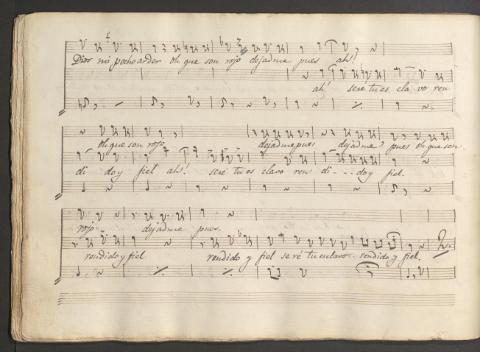 Dios mi pecho arder oh que son rojo dejadme pues ah!
ah! seré tu esclavo ren
oh que son rojo dejadme pues dejadme pues oh que son
di do y fiel ah! seré tu esclavo ren di - - - do y fiel.
rojo dejadme pues
rendido y fiel rendido y fiel seré tu esclavo rendido y fiel.